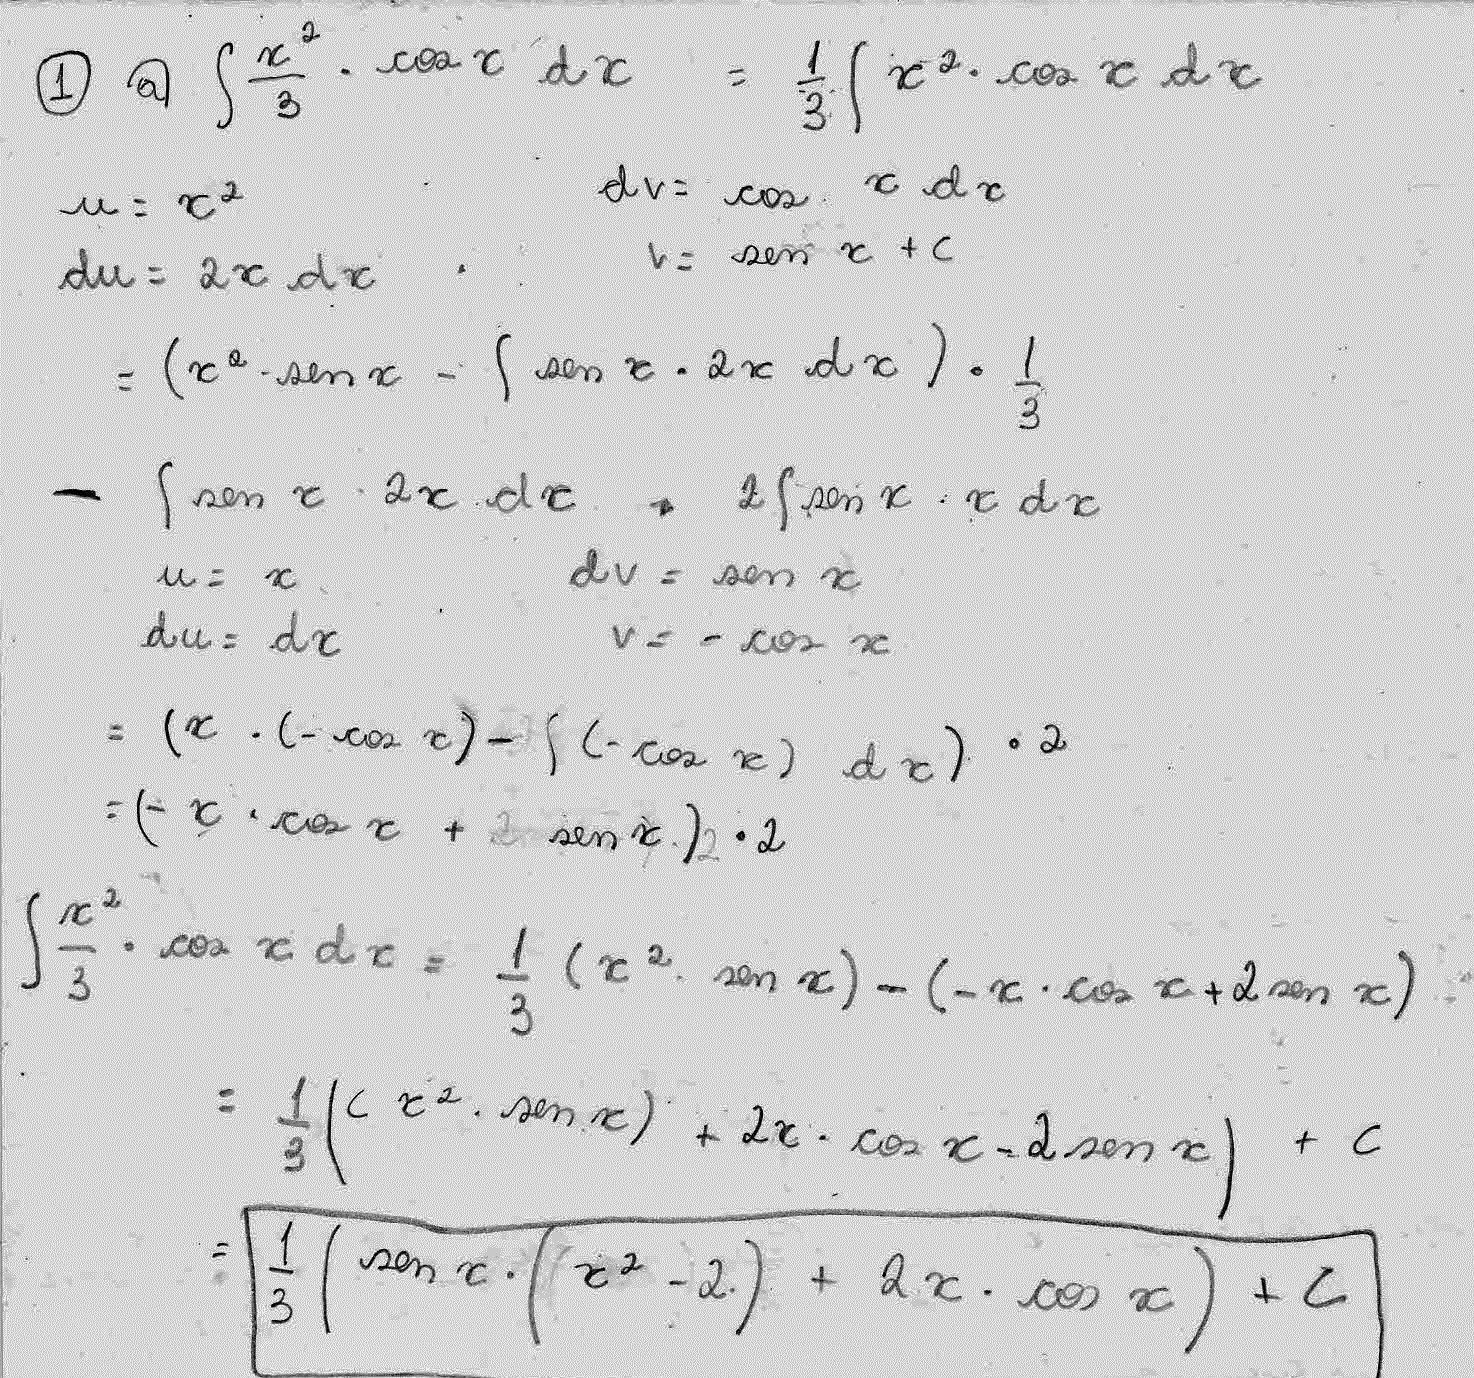 ① a) ∫ x²/3 · cos x dx = 1/3 ∫ x² · cos x dx
u = x² dv = cos x dx
du = 2x dx v = sen x + C
= (x² · sen x - ∫ sen x · 2x dx) · 1/3
- ∫ sen x · 2x dx · 2 ∫ sen x · x dx
u = x dv = sen x
du = dx v = - cos x
= (x · (- cos x) - ∫ (- cos x) dx) · 2
= (- x · cos x + sen x) · 2
∫ x²/3 · cos x dx = 1/3 (x² · sen x) - (- x · cos x + 2 sen x)
= 1/3 (( x² · sen x) + 2x · cos x - 2 sen x) + C
= 1/3 (sen x · (x² - 2) + 2x · cos x) + C